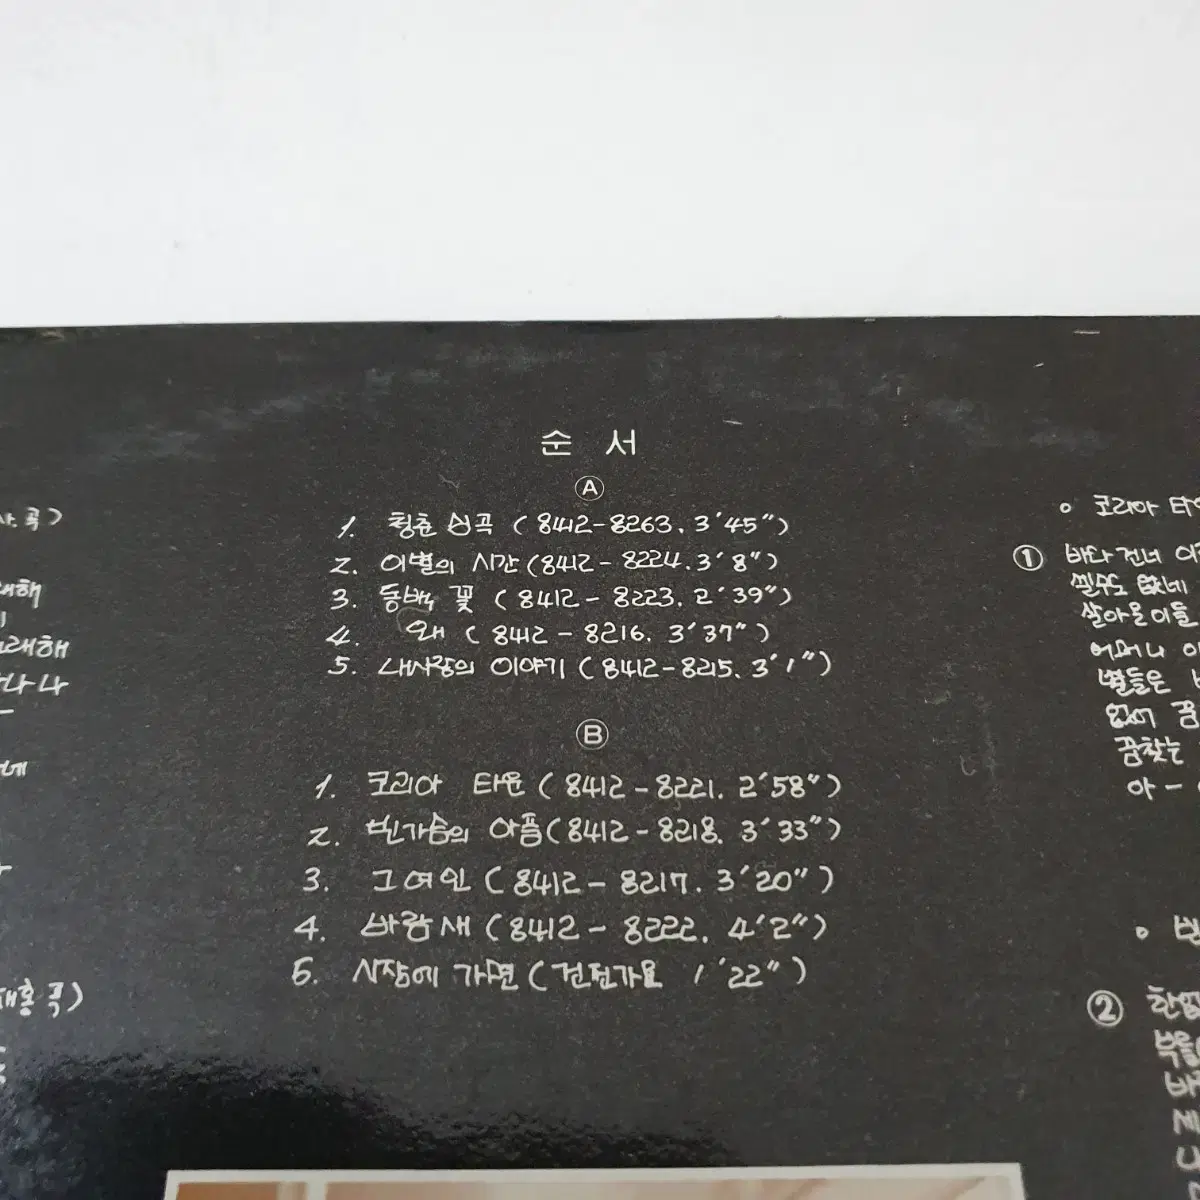 순 서
Ⓐ
1. 청춘 심곡 (8412-8263. 3′45″)
2. 이별의 시간 (8412-8224. 3′8″)
3. 동백 꽃 (8412-8223. 2′39″)
4. 왜 (8412-8216. 3′37″)
5. 내사랑의 이야기 (8412-8215. 3′1″)
Ⓑ
1. 코리아 타운 (8412-8221. 2′58″)
2. 빈가슴의 아픔 (8412-8218. 3′33″)
3. 그여인 (8412-8217. 3′20″)
4. 바람새 (8412-8222. 4′2″)
5. 시장에 가면 (건전가요 1′22″)
곡)
래해
나나
네
곡)
○ 코리아
① 바다건너
없네
살아온이들
어머니
별들은
없이 꿈
꿈찾는
아-
②